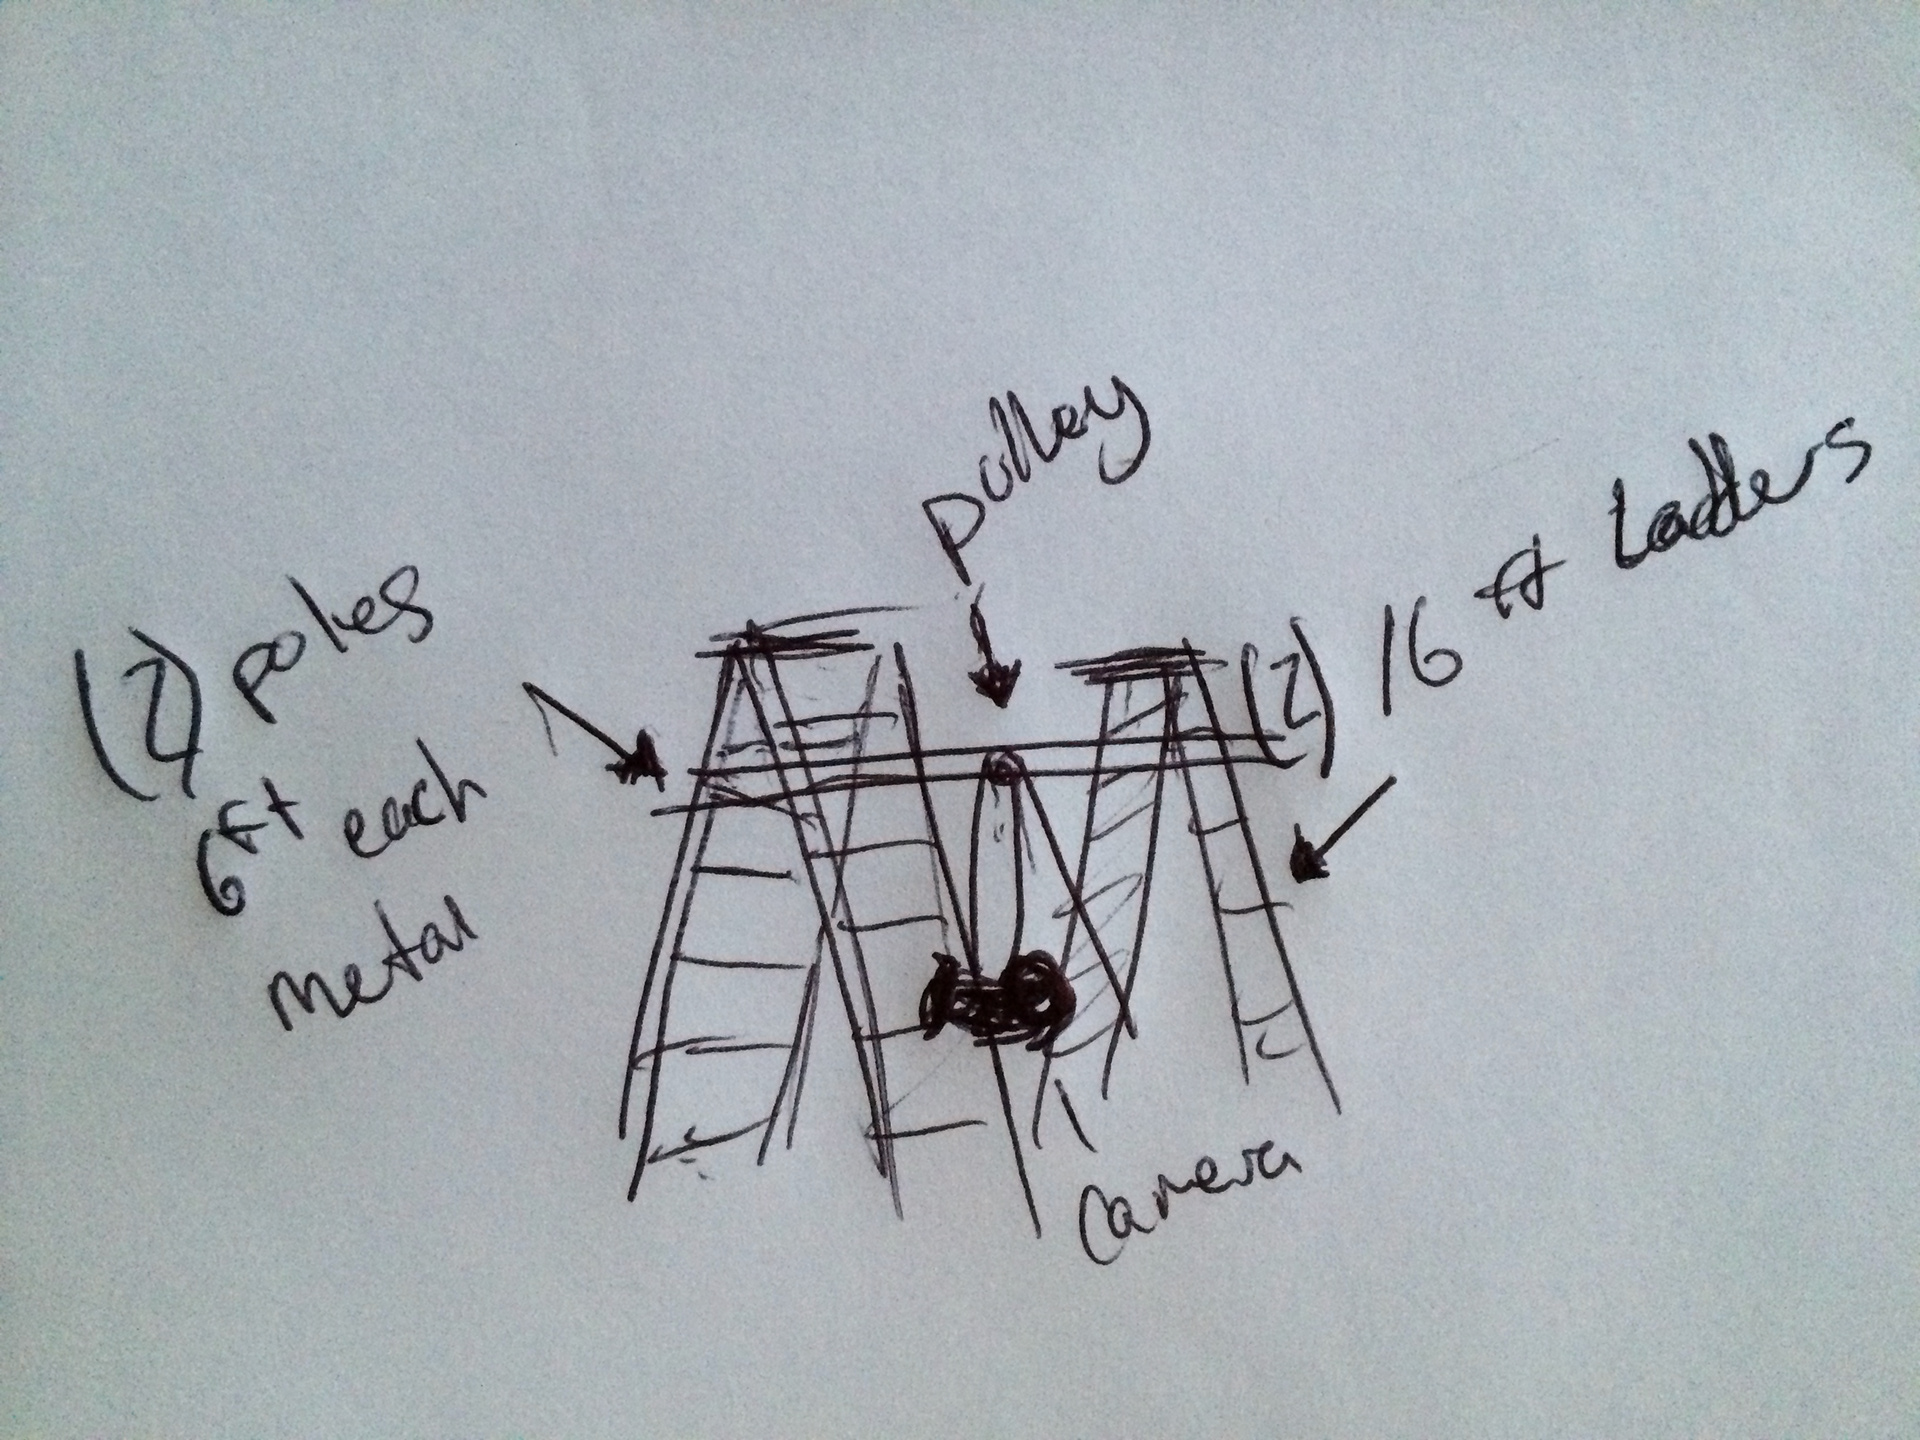 pulley
(2) 16 ft Ladders
(2) poles
6ft each
metal
Camera